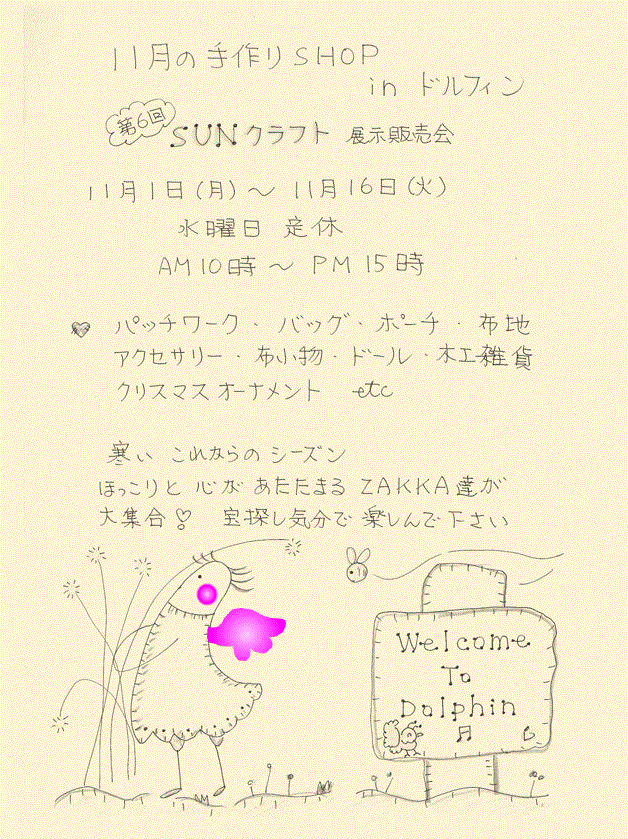 11月の手作りSHOP
in ドルフィン
第6回
SUNクラフト 展示販売会
11月1日(月)～ 11月16日(火)
水曜日 定休
AM10時～ PM15時
パッチワーク・バッグ・ポーチ・布地
アクセサリー・布小物・ドール・木工雑貨
クリスマスオーナメント etc
寒い これからの シーズン
ほっこりと 心が あたたまる ZAKKA達が
大集合♡ 宝探し気分で 楽しんで下さい
Welcome
To
Dolphin